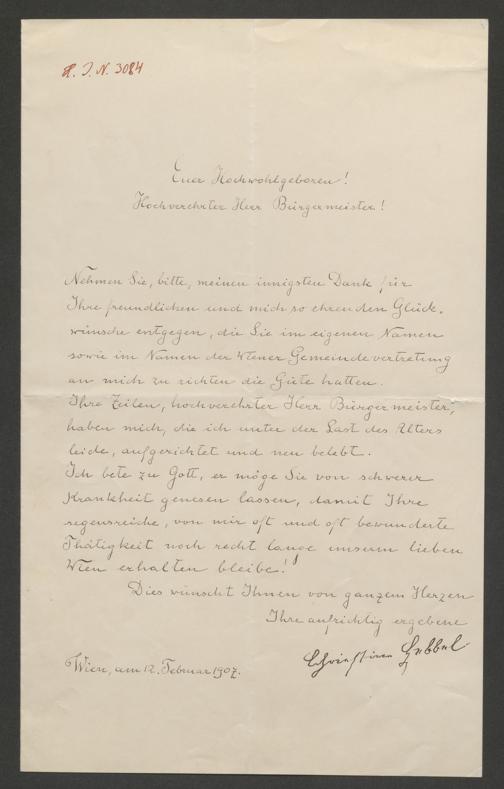 H. I. N. 3084
Euer Hochwohlgeboren!
Hochverehrter Herr Bürgermeister!
Nehmen Sie, bitte, meinen innigsten Dank für
Ihre freundlichen und mich so ehrenden Glück-
wünsche entgegen, die Sie im eigenen Namen
sowie im Namen der Wiener Gemeindevertretung
an mich zu richten die Güte hatten.
Ihre Zeilen, hochverehrter Herr Bürgermeister,
haben mich, die ich unter der Last des Alters
leide, aufgerichtet und neu belebt.
Ich bete zu Gott, er möge Sie von schwerer
Krankheit genesen lassen, damit Ihre
segensreiche, von mir oft und oft bewunderte
Thätigkeit noch recht lange unserm lieben
Wien erhalten bleibe!
Dies wünscht Ihnen von ganzem Herzen
Ihre aufrichtig ergebene
Christine Hebbel
Wien, am 12. Februar 1907.